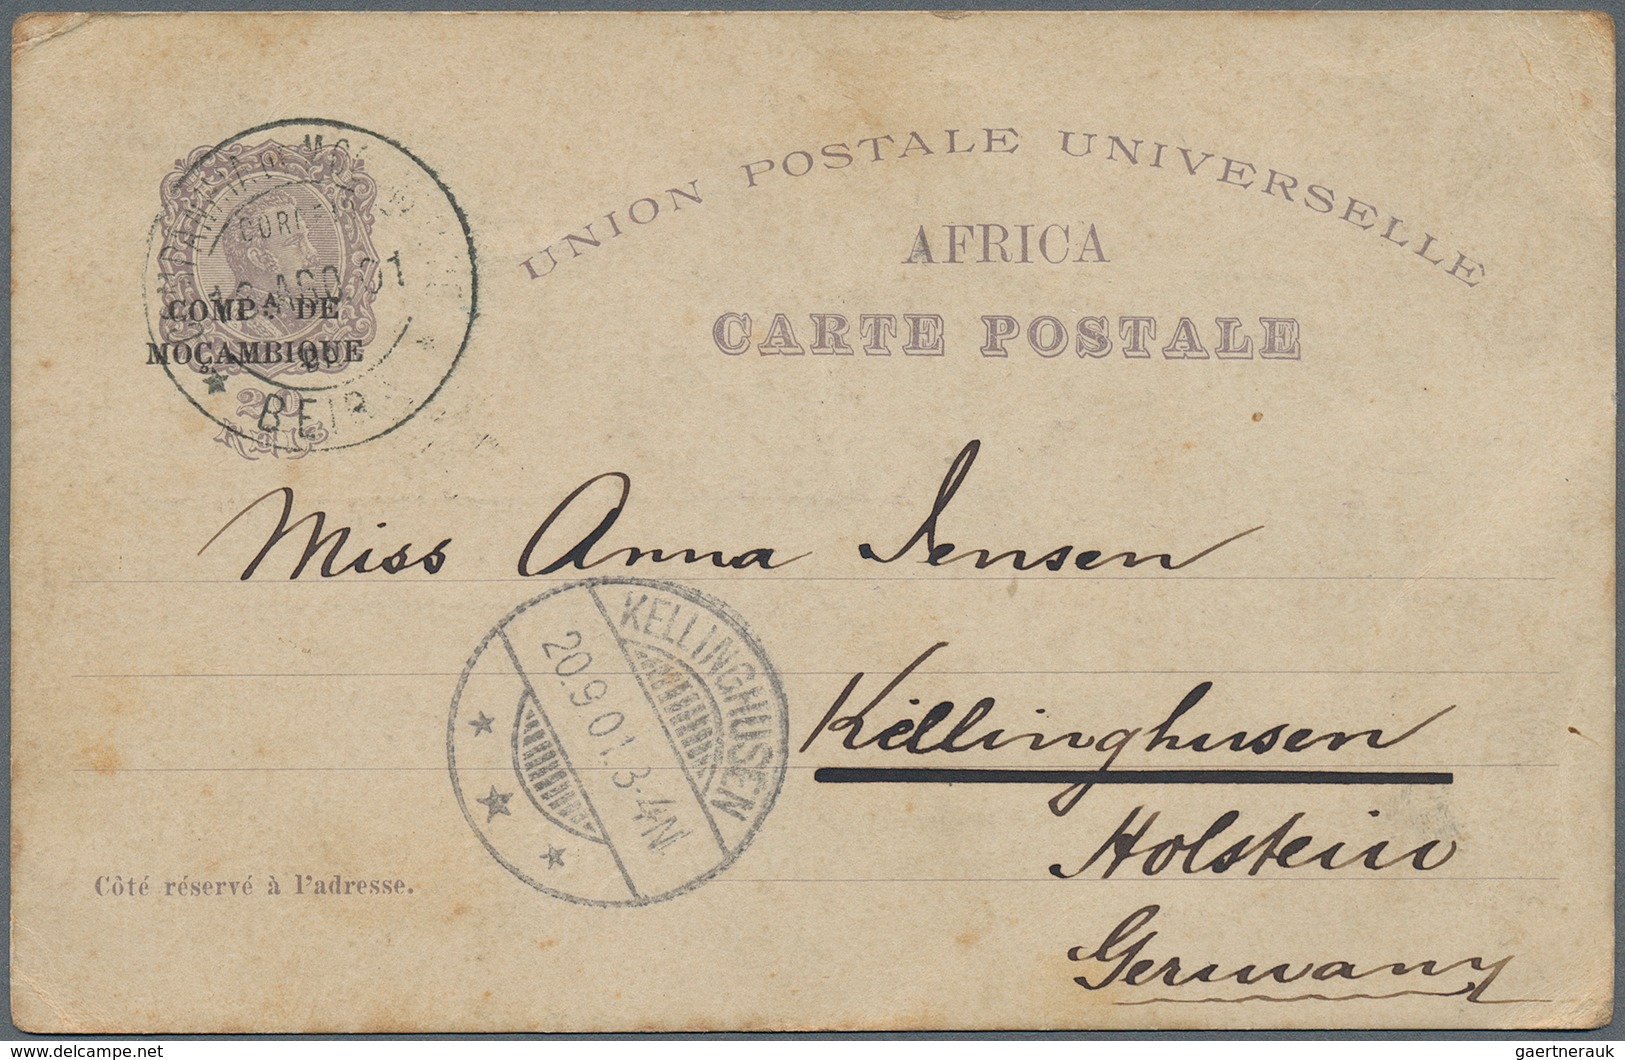 UNION POSTALE UNIVERSELLE
AFRICA
CARTE POSTALE
AGO 01
COMPA. DE
MOÇAMBIQUE
BEIRA
20
REIS
Miss Anna Jensen
KELLINGHUSEN
20.9.01.3-4N.
Kellinghusen
Holstein
Germany
Côté réservé à l'adresse.
delcampe.net
gaertnerauk